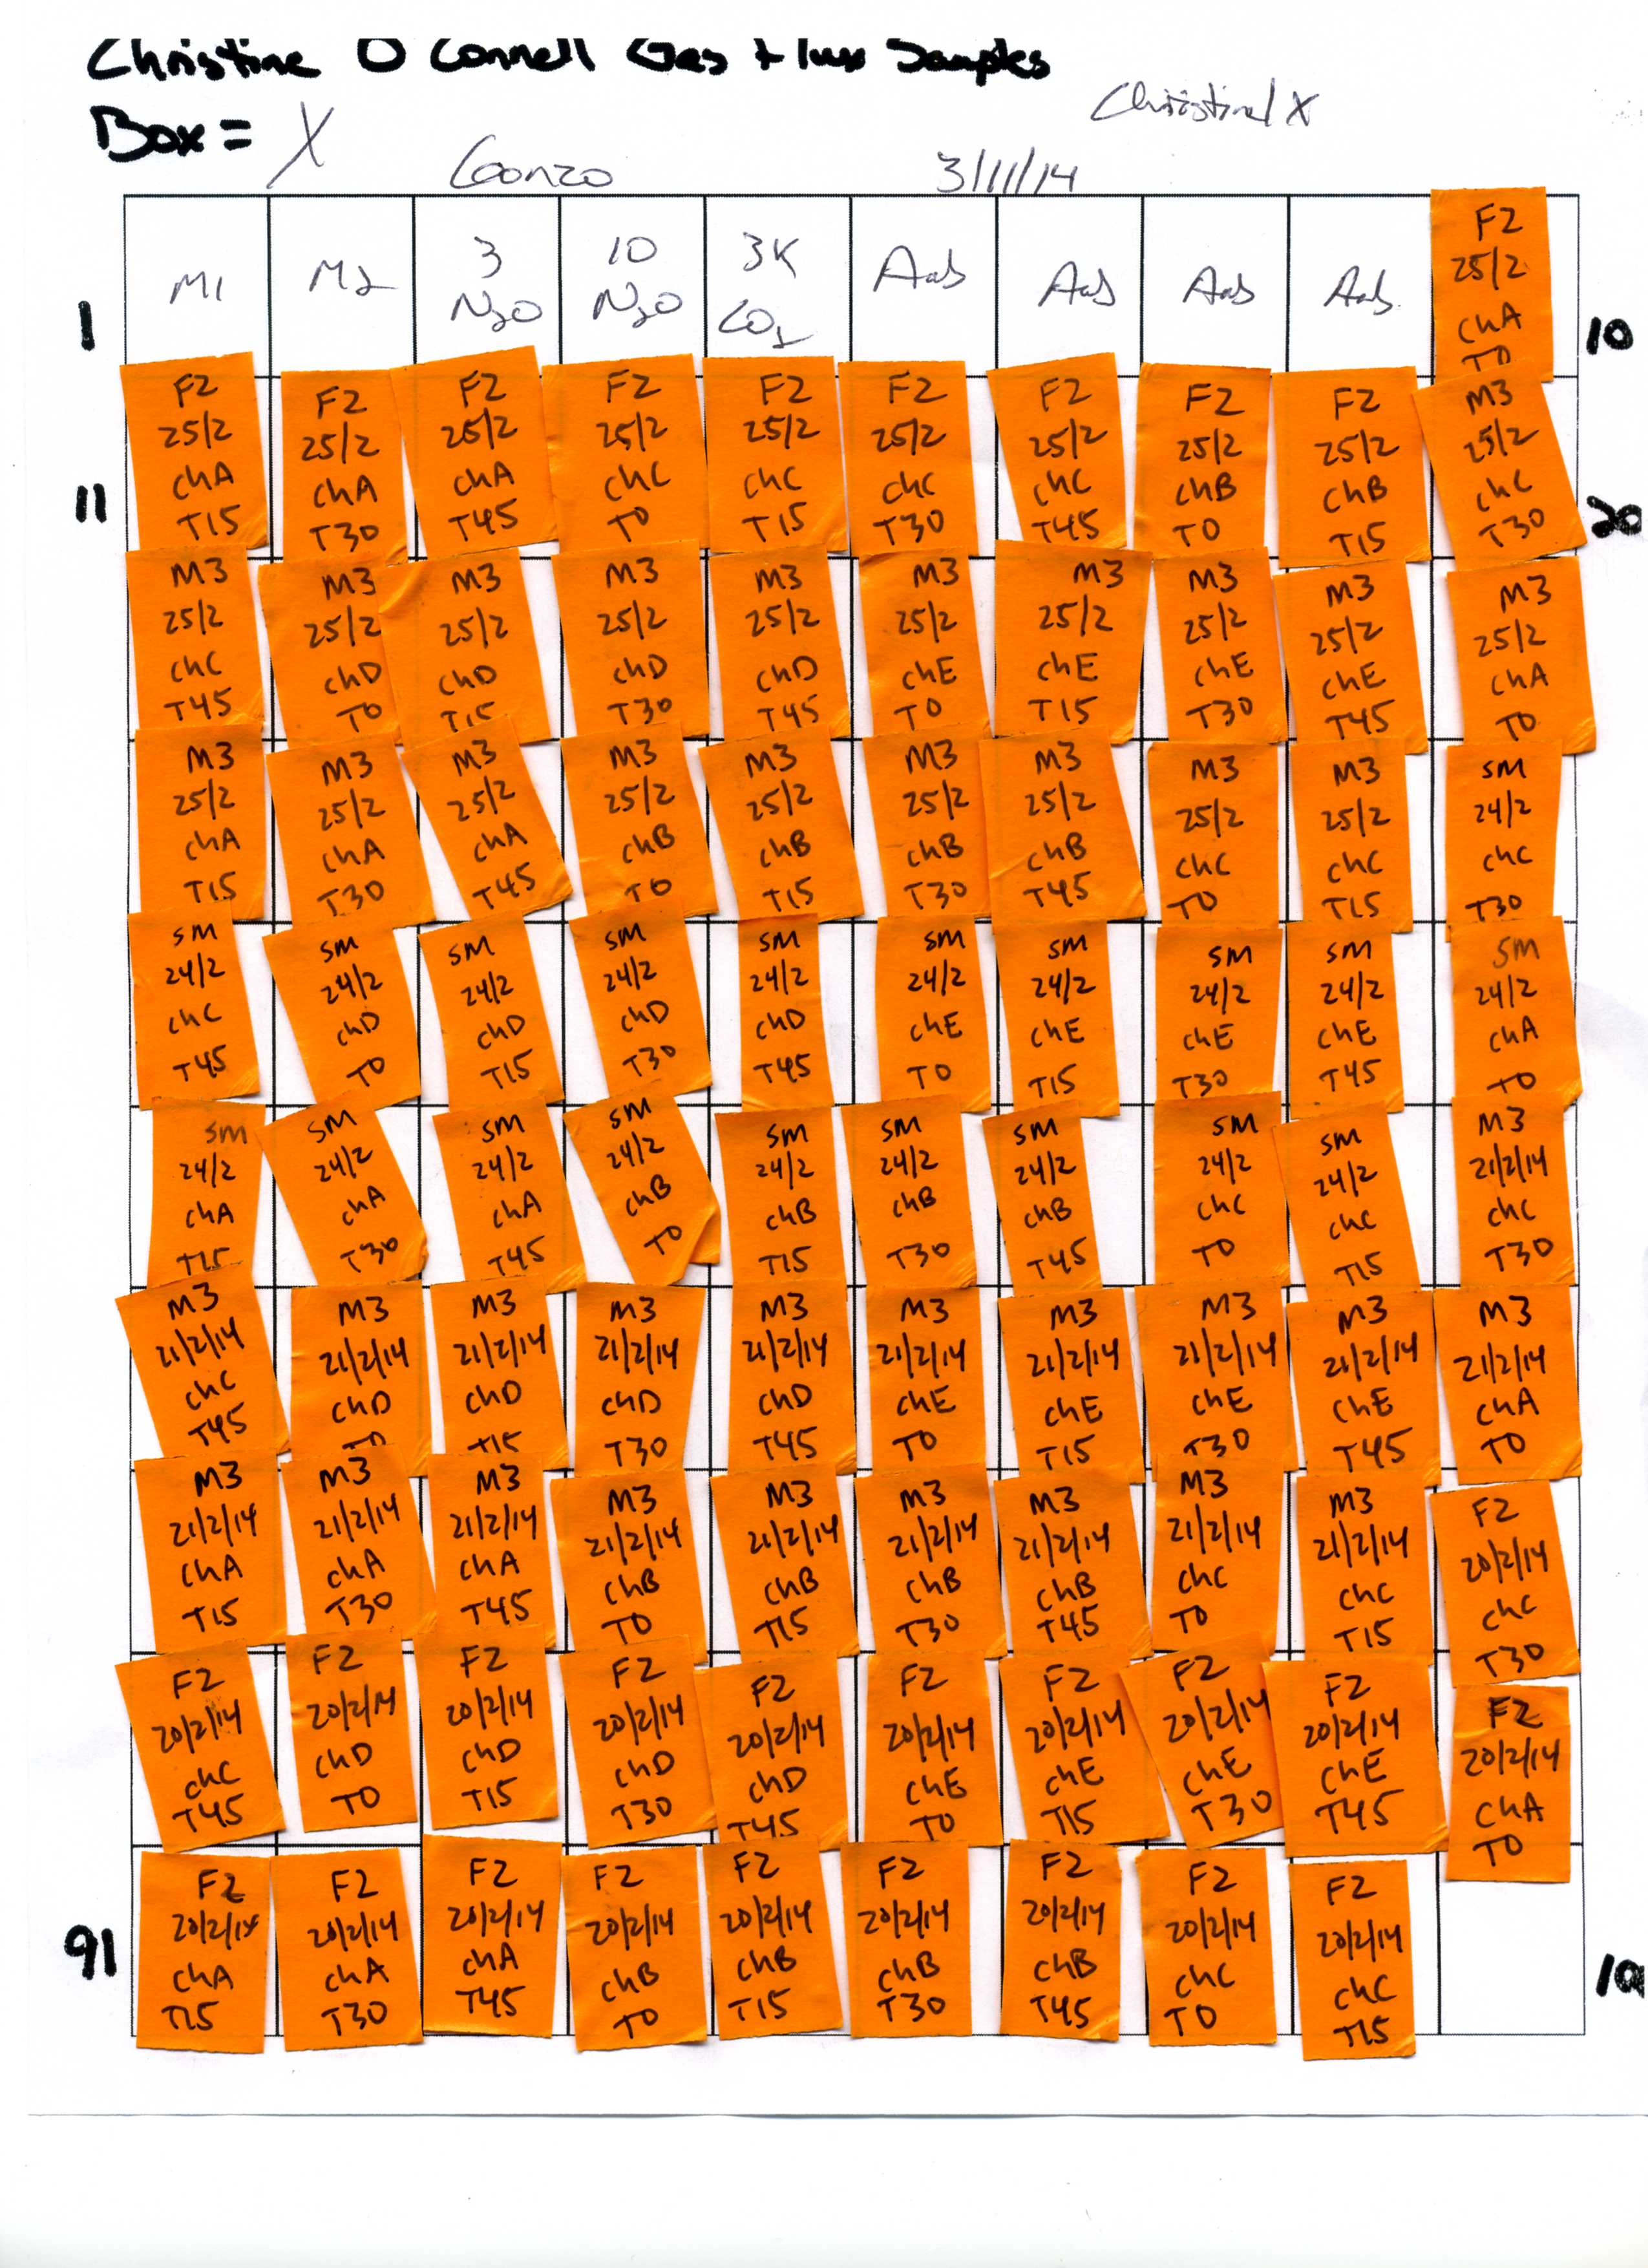 Christine O Connell Gas Flux Samples
Christine/X
Box = X
Gonzo
3/11/14
1
M1
M2
3
N2O
10
N2O
3K
CO2
F2
25/2
ChA
T0
10
11
F2
25/2
ChA
T15
F2
25/2
ChA
T30
F2
25/2
ChA
T45
F2
25/2
ChC
T0
F2
25/2
ChC
T15
F2
25/2
ChC
T30
F2
25/2
ChC
T45
F2
25/2
ChB
T0
F2
25/2
ChB
T15
M3
25/2
ChC
T30
20
M3
25/2
ChC
T45
M3
25/2
ChD
T0
M3
25/2
ChD
T15
M3
25/2
ChD
T30
M3
25/2
ChD
T45
M3
25/2
ChE
T0
M3
25/2
ChE
T15
M3
25/2
ChE
T30
M3
25/2
ChE
T45
M3
25/2
ChA
T0
M3
25/2
ChA
T15
M3
25/2
ChA
T30
M3
25/2
ChA
T45
M3
25/2
ChB
T0
M3
25/2
ChB
T15
M3
25/2
ChB
T30
M3
25/2
ChB
T45
M3
25/2
ChC
T0
M3
25/2
ChC
T15
SM
24/2
ChC
T30
SM
24/2
ChC
T45
SM
24/2
ChD
T0
SM
24/2
ChD
T15
SM
24/2
ChD
T30
SM
24/2
ChD
T45
SM
24/2
ChE
T0
SM
24/2
ChE
T15
SM
24/2
ChE
T30
SM
24/2
ChE
T45
SM
24/2
ChA
T0
SM
24/2
ChA
T15
SM
24/2
ChA
T30
SM
24/2
ChA
T45
SM
24/2
ChB
T0
SM
24/2
ChB
T15
SM
24/2
ChB
T30
SM
24/2
ChB
T45
SM
24/2
ChC
T0
SM
24/2
ChC
T15
M3
21/2/14
ChC
T30
M3
21/2/14
ChC
T45
M3
21/2/14
ChD
T0
M3
21/2/14
ChD
T15
M3
21/2/14
ChD
T30
M3
21/2/14
ChD
T45
M3
21/2/14
ChE
T0
M3
21/2/14
ChE
T15
M3
21/2/14
ChE
T30
M3
21/2/14
ChE
T45
M3
21/2/14
ChA
T0
M3
21/2/14
ChA
T15
M3
21/2/14
ChA
T30
M3
21/2/14
ChA
T45
M3
21/2/14
ChB
T0
M3
21/2/14
ChB
T15
M3
21/2/14
ChB
T30
M3
21/2/14
ChB
T45
M3
21/2/14
ChC
T0
M3
21/2/14
ChC
T15
F2
20/2/14
ChC
T30
F2
20/2/14
ChC
T45
F2
20/2/14
ChD
T0
F2
20/2/14
ChD
T15
F2
20/2/14
ChD
T30
F2
20/2/14
ChD
T45
F2
20/2/14
ChE
T0
F2
20/2/14
ChE
T15
F2
20/2/14
ChE
T30
F2
20/2/14
ChE
T45
F2
20/2/14
ChA
T0
91
F2
20/2/14
ChA
T15
F2
20/2/14
ChA
T30
F2
20/2/14
ChA
T45
F2
20/2/14
ChB
T0
F2
20/2/14
ChB
T15
F2
20/2/14
ChB
T30
F2
20/2/14
ChB
T45
F2
20/2/14
ChC
T0
F2
20/2/14
ChC
T15
10